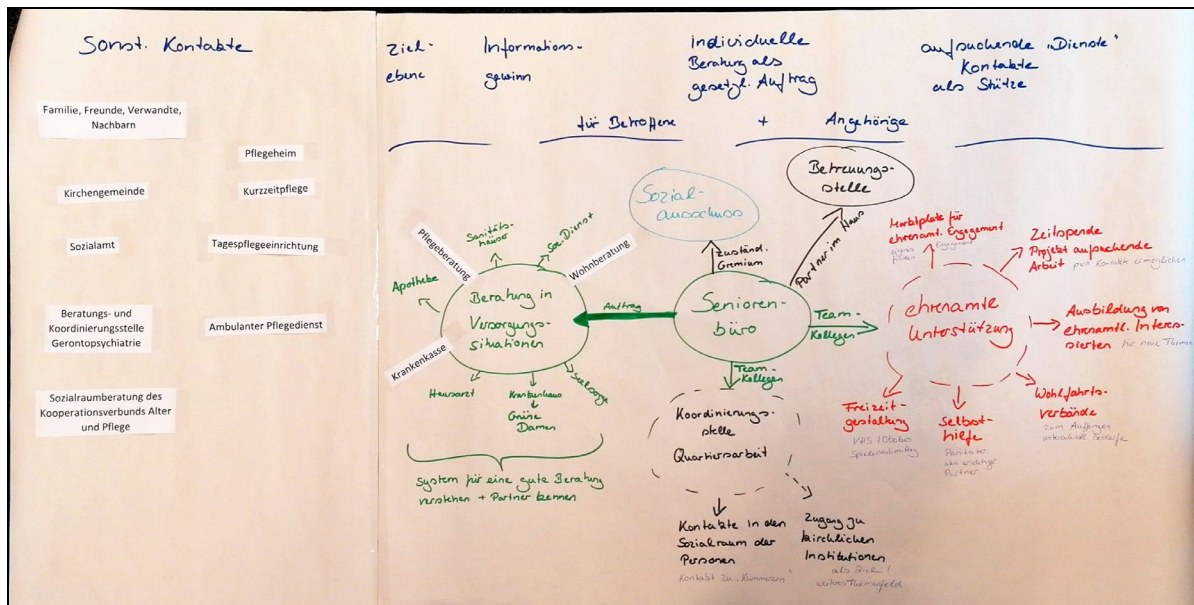 Sonst. Kontakte
Familie, Freunde, Verwandte,
Nachbarn
Pflegeheim
Kirchengemeinde
Kurzzeitpflege
Sozialamt
Tagespflegeeinrichtung
Beratungs- und
Koordinierungsstelle
Gerontopsychiatrie
Ambulanter Pflegedienst
Sozialraumberatung des
Kooperationsverbunds Alter
und Pflege
Ziel-
ebene
Informations-
gewinn
individuelle
Beratung als
gesetzl. Auftrag
aufsuchende „Dienste“
Kontakte
als Stütze
für Betroffene + Angehörige
Sozial-
ausschuss
Betreuungs-
stelle
zuständ.
Gremium
Partner im Haus
Pflegeberatung
Sanitäts-
häuser
Soz. Dienst
Wohnberatung
Apotheke
Beratung in
Versorgungs-
situationen
Krankenkasse
Hausarzt
Krankenhaus
Grüne
Damen
Seelsorge
System für eine gute Beratung
verstehen + Partner kennen
Auftrag
Senioren-
büro
Team-
Kollegen
Team-
Kollegen
Koordinierungs-
stelle
Quartiersarbeit
Kontakte in den
Sozialraum der
Personen
Kontakt zu „Kümmerern“
Zugang zu
kirchlichen
Institutionen
als Ziel!
weiteres Themenfeld
ehrenamtl.
Unterstützung
Marktplatz für
ehrenamtl. Engagement
Engagement
Zeitspende
Projekt aufsuchende
Arbeit
Kontakte ermöglichen
Ausbildung von
ehrenamtl. Interes-
sierten
für neue Themen
Wohlfahrts-
verbände
zum Auffangen
Selbst-
hilfe
Partner
Freizeit-
gestaltung
VHS
Spielenachmittag